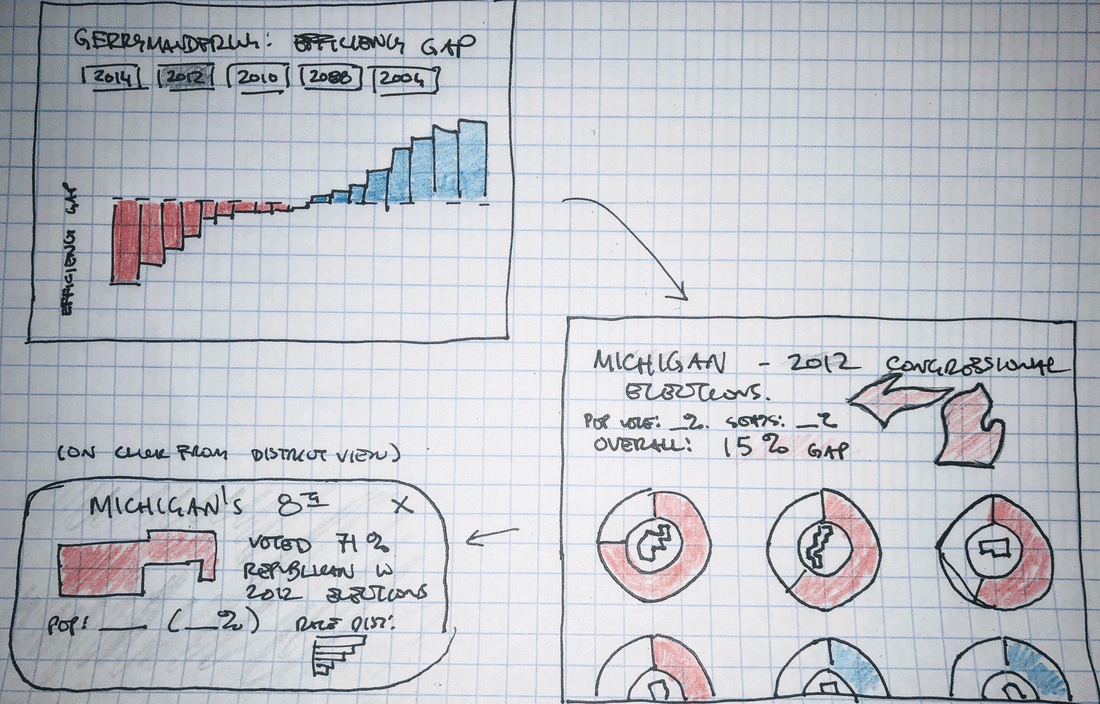 GERRYMANDERING: EFFICIENCY GAP
2014 2012 2010 2008 2004
EFFICIENCY GAP
MICHIGAN - 2012 CONGRESSIONAL
ELECTIONS.
POP VOTE: _%. SEATS: _%
OVERALL: 15% GAP
(ON CLICK FROM DISTRICT VIEW)
MICHIGAN'S 8TH X
VOTED 71%
REPUBLICAN IN
2012 ELECTIONS
POP: ___ (__%) RACE DIST: